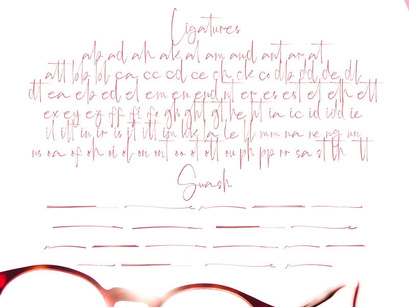 Ligatures
ab ad ah ak al am and ant ar at
att bb bl ca cc cd ce ch ck co db dd de dk
dt ea eb ed el em en end nt er es est et eth ett
ex ey ez ff fi fo gh ght gt he ht ia ic id idd ie
il ill in ir is it itt
ll mm na ne ng nn
of oh oi ol on ont oo ot ott ou ph pp rr sa st th tt
Swash